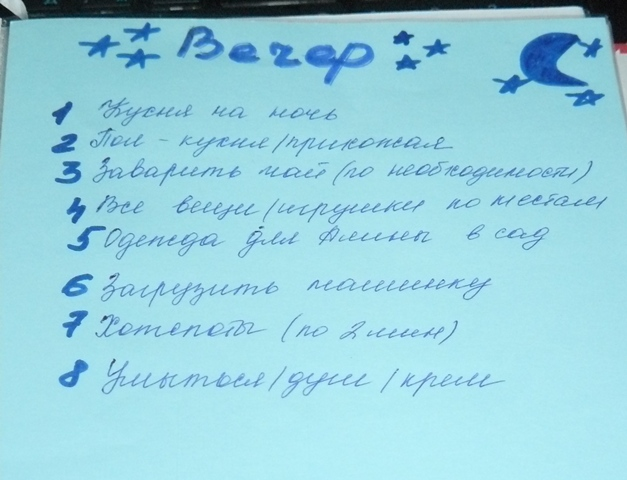 Вечер
1 Кухня на ночь
2 Пол - кухня/прихожая
3 Заварить чай (по необходимости)
4 Все вещи/игрушки по местам
5 Одежда для Алины в сад
6 Загрузить машинку
7 Хотспоты (по 2 мин)
8 Умыться/душ/крем